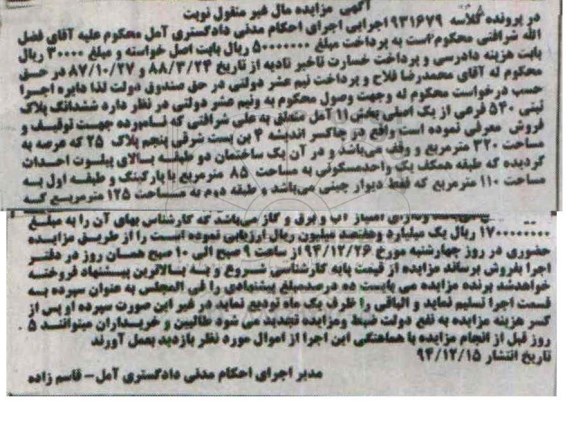 آگهی مزایده مال غیر منقول نوبت
در پرونده کلاسه ۹۳۱۶۷۹ اجرایی اجرای احکام مدنی دادگستری آمل محکوم علیه آقای فضل
الله شرافتی محکوم است به پرداخت مبلغ ۵۰۰۰۰۰۰۰ ریال بابت اصل خواسته و مبلغ ۳۰۰۰۰ ریال
بابت هزینه دادرسی و پرداخت خسارت تاخیر تادیه از تاریخ ۸۸/۳/۲۴ و ۸۷/۱۰/۲۷ در حق
محکوم له آقای محمدرضا فلاح و پرداخت نیم عشر دولتی در حق صندوق دولت لذا دایره اجرا
حسب درخواست محکوم له وجهت وصول محکوم به ونیم عشر دولتی در نظر دارد ششدانگ پلاک
ثبتی ۵۴۰ فرعی از یک اصلی بخش ۱۱ آمل متعلق به علی شرافتی که نامبرده جهت توقیف و
فروش معرفی نموده است واقع در چاکسر اندیشه ۴ بن بست شرقی پنجم پلاک ۲۵ که عرصه به
مساحت ۳۲۰ مترمربع و وقف می‌باشد و در آن یک ساختمان دو طبقه بالای پیلوت احداث
گردیده که طبقه همکف یک واحدمسکونی به مساحت ۸۵ مترمربع با پارکینگ و طبقه اول به
مساحت ۱۱۰ مترمربع که فقط دیوار چینی می‌باشد و طبقه دوم به مساحت ۱۲۵ مترمربع که
امتیاز آب و برق و گاز می‌باشد که کارشناس بهای آن را به مبلغ
۱۷۰۰۰۰۰۰۰۰ ریال یک میلیارد وهفتصد میلیون ریال ارزیابی نموده است را از طریق مزایده
حضوری در روز چهارشنبه مورخ ۹۴/۱۲/۲۶ از ساعت ۹ صبح الی ۱۰ صبح همان روز در دفتر
اجرا بفروش برساند مزایده از قیمت پایه کارشناسی شروع و به بالاترین پیشنهاد فروخته
خواهدشد برنده مزایده می بایست ده درصدمبلغ پیشنهادی را فی المجلس به عنوان سپرده به
قسمت اجرا تسلیم نماید و الباقی را ظرف یک ماه تودیع نماید در غیر این صورت سپرده او پس از
کسر هزینه مزایده به نفع دولت ضبط ومزایده تجدید می شود طالبین و خریداران میتوانند ۵
روز قبل از انجام مزایده با هماهنگی این اجرا از اموال مورد نظر بازدید بعمل آورند
تاریخ انتشار ۹۴/۱۲/۱۵
مدیر اجرای احکام مدنی دادگستری آمل- قاسم زاده